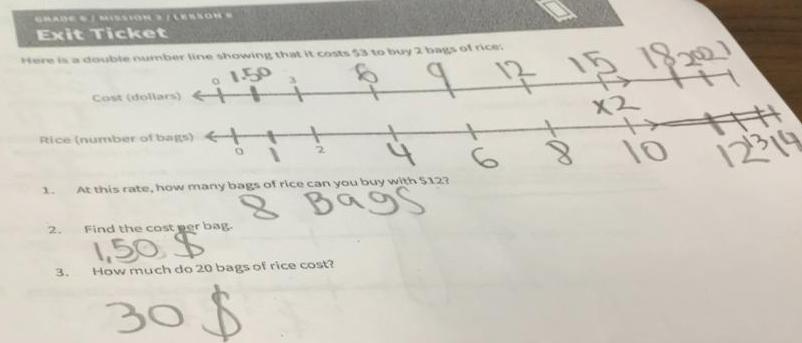 GRADE 6 / MISSION 2 / LESSON
Exit Ticket
Here is a double number line showing that it costs $3 to buy 2 bags of rice:
0 1.50 3 6 9 12 15 18 20 21
Cost (dollars)
x2
Rice (number of bags)
0 1 2 4 6 8 10 12 13 14
1. At this rate, how many bags of rice can you buy with $12?
8 Bags
2. Find the cost per bag.
1,50 $
3. How much do 20 bags of rice cost?
30 $